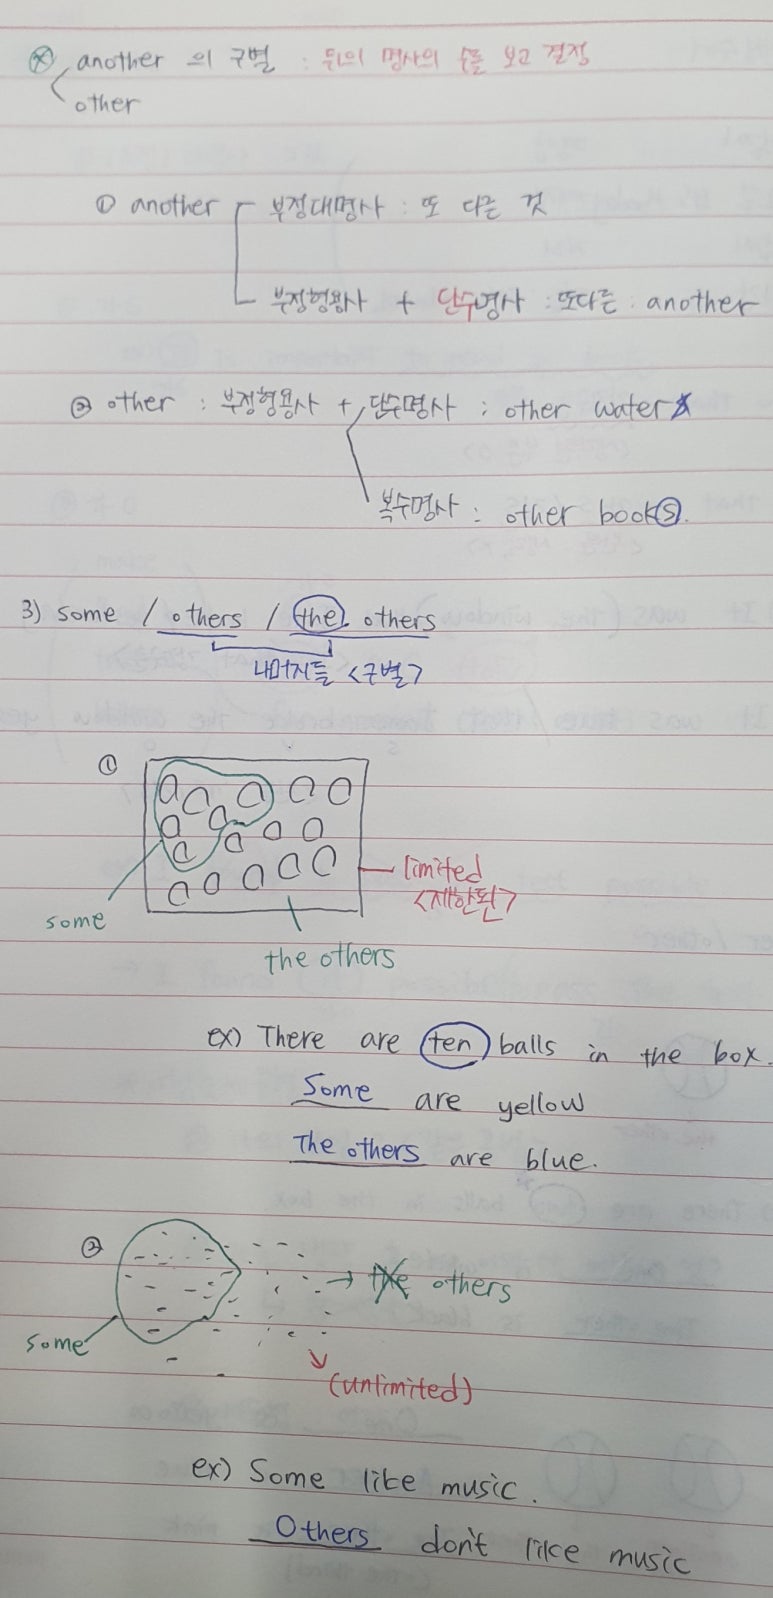 ※ another 의 구별 : 뒤의 명사의 수를 보고 결정
other
① another 부정대명사 : 또 다른 것
부정형용사 + 단수명사 : 또다른 : another
② other : 부정형용사 + 단수명사 : other water
복수명사 : other books.
3) some / others / the others
나머지들 <구별>
①
limited
<제한된>
some
the others
ex) There are ten balls in the box.
Some are yellow
The others are blue.
②
the others
some
(unlimited)
ex) Some like music.
Others don't like music